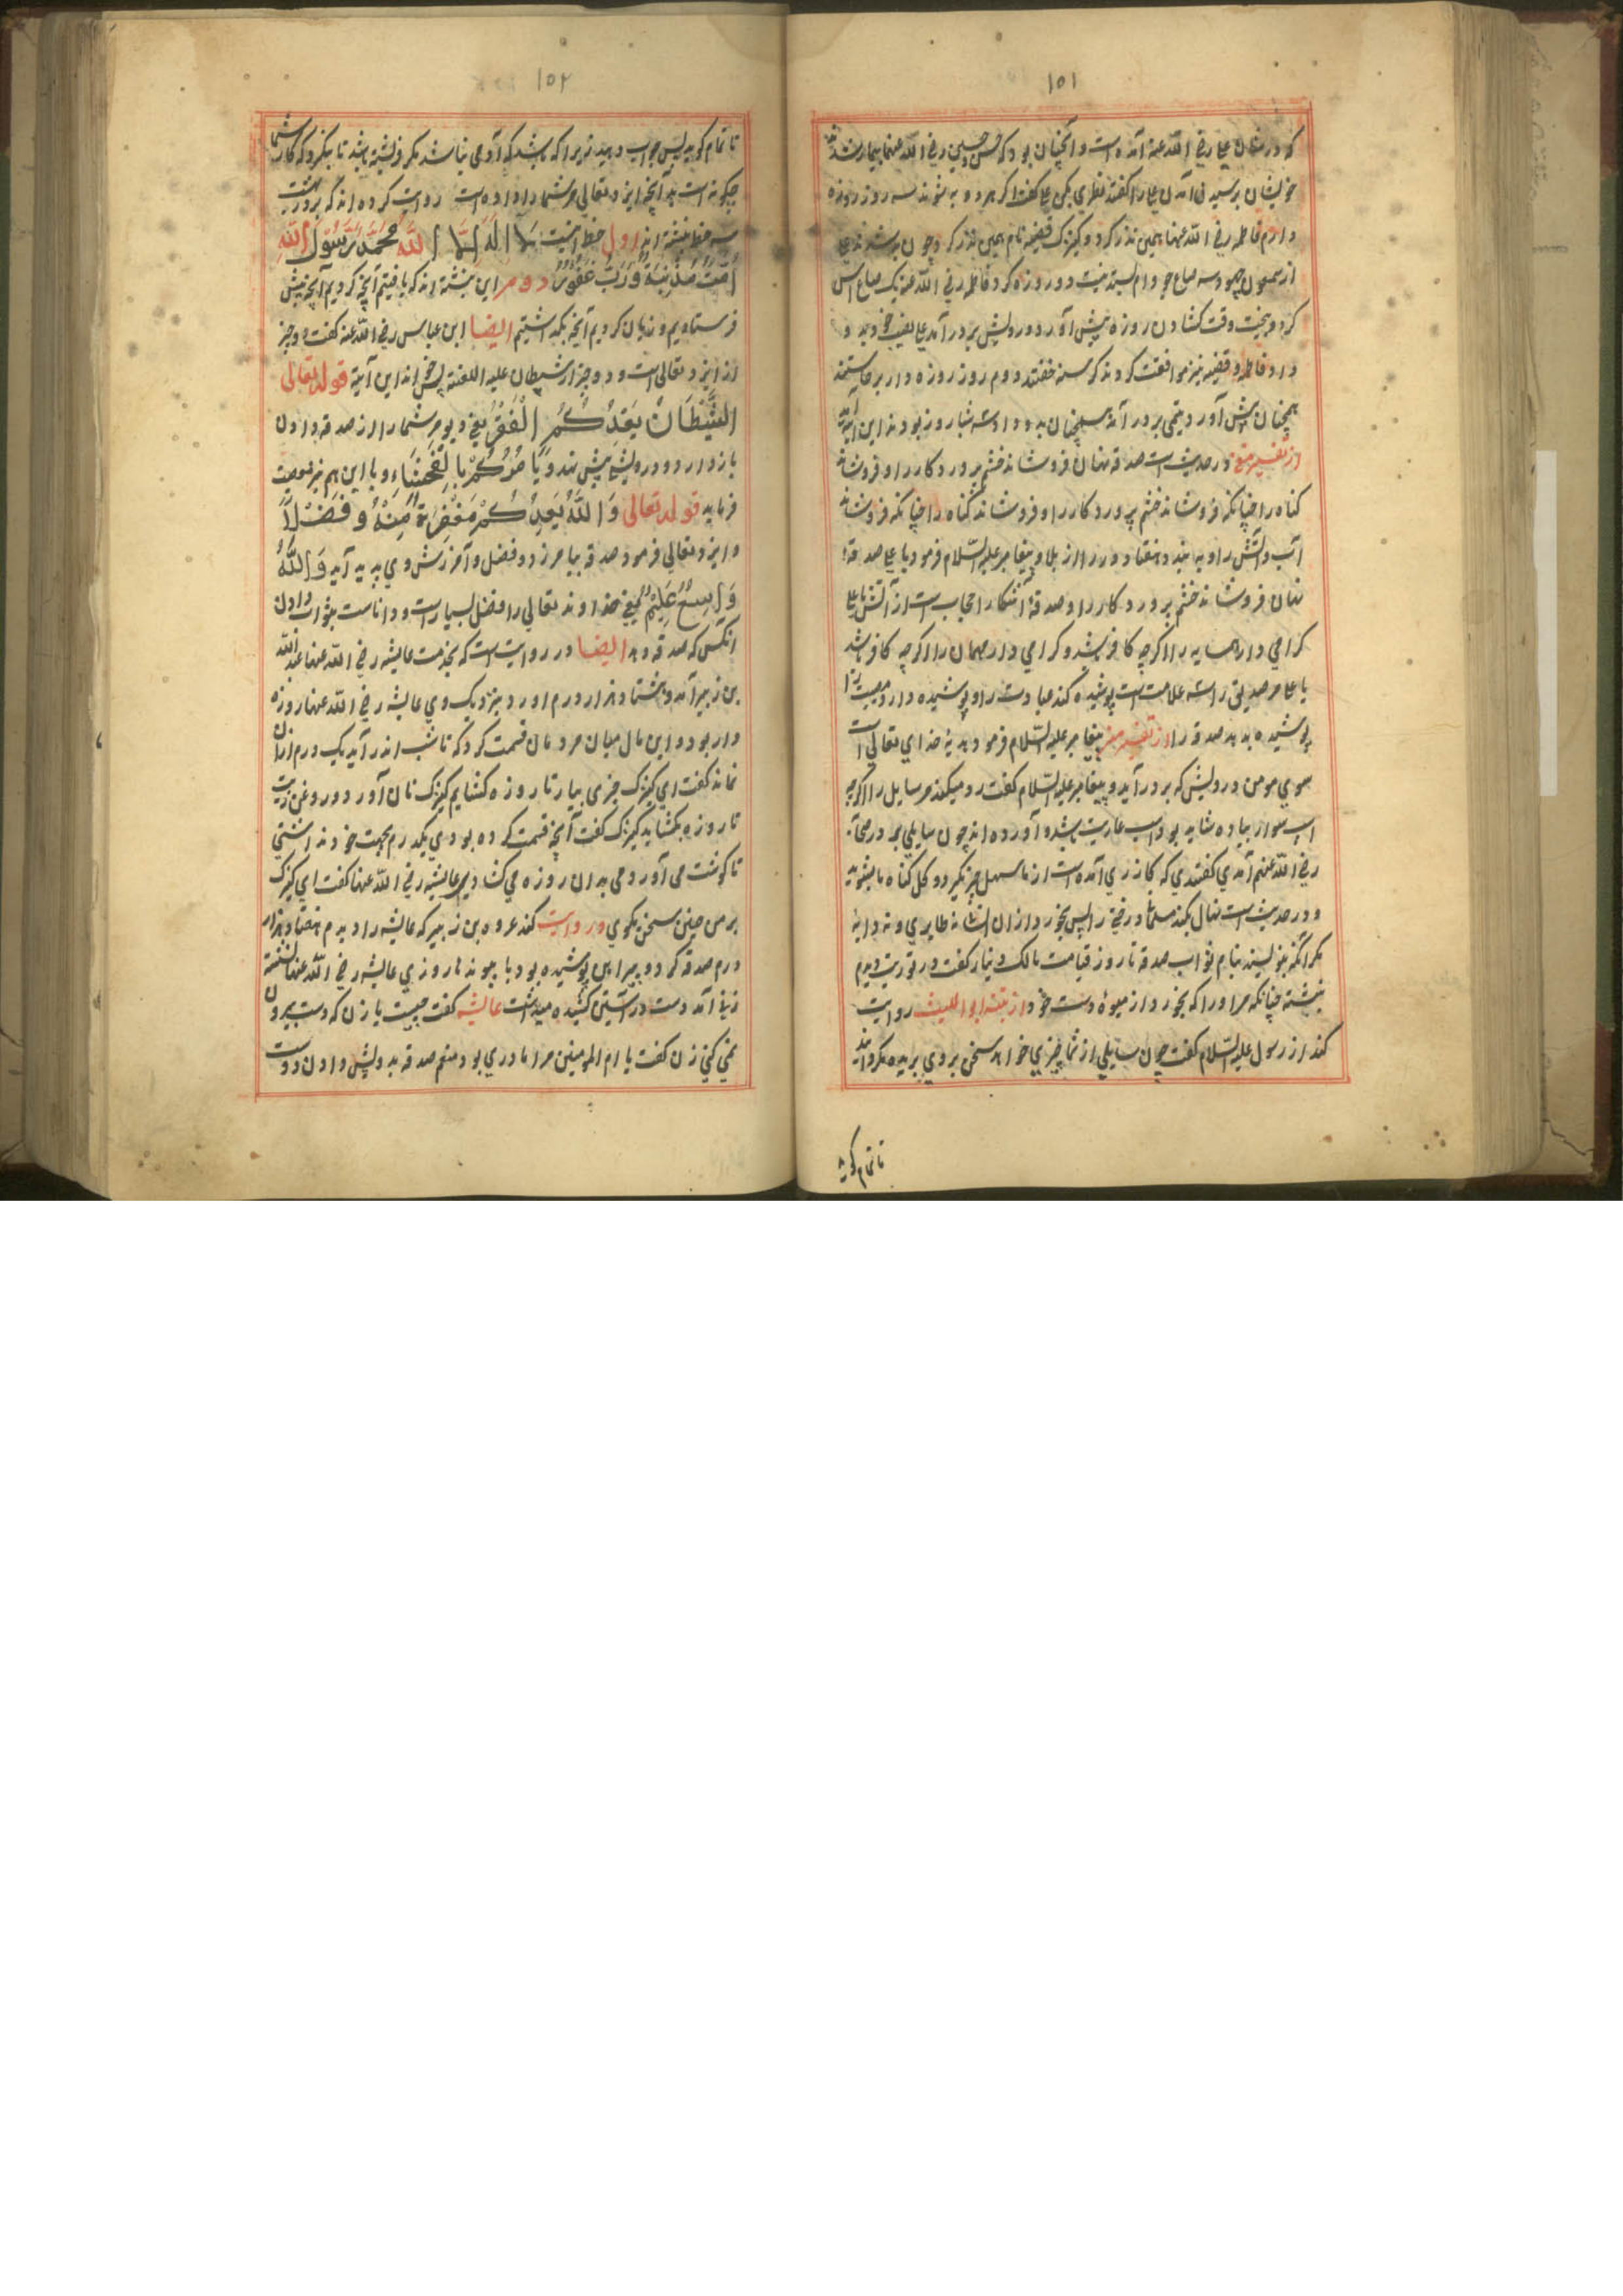 ۱۵۱
که در شان علی رضی الله عنه آمده است و آنچنان بود که حسن و حسین رضی الله عنهما بیمار شدند
خویشان پرسیدن آمدن علی را گفتند نذری بکن علی گفت اگر هر دو به شوند سه روز روزه
دارم فاطمه رضی الله عنها همین نذر کرد و کنیزک فضیه نام همین نذر کرد چون به شدند علی
از شمعون جهود سه صاع جو وام ستد نیت دو روزه کرد فاطمه رضی الله عنه یک صاع آس
کرد و پخت وقت کشادن روزه پیش آورد درویش بر در آمد علی نصیب خود بد و
داد فاطمه و فضیه نیز موافقت کردند گرسنه خفتند دوم روز روزه دار برخاستند
همچنان پیش آورد یتیمی بر در آمد همچنان بدو داد سه شبا روز بودند این آیه آمد
از تفسیر مغنی در حدیث است صدقه نهان فروشاند خشم پروردکار را و فروشاند
کناه را چنانکه فروشاند خشم پروردکار را و فروشاند کناه را چنانکه فروشاند
آب آتش را و به بندد هفتاد در را از بلا و پیغامبر علیه السلام فرمود یا علی صدقهٔ
نهان فروشاند خشم پروردکار را و صدقهٔ آشکارا حجاب است از آتش یا علی
کرامی دار همسایه را اگرچه کافر باشد و کرامی دار مهمان را اگرچه کافر باشد
یا علی مر صدیق را سه علامت است پوشیده کند عبادت را و پوشیده دارد مصیبت را
پوشیده بدهد صدقه را از تفسیر مغنی پیغامبر علیه السلام فرمود هدیهٔ خدای تعالی است
سوی مومن درویش که بر در آید و پیغامبر علیه السلام کفت رد میکنند مر سایل را اگرچه
اسب سوار بیاده شاید بود اسب عاریت باشد و آورده اند چون سایلی بر در صحابه
رضی الله عنهم آمدی کفتندی که کازری آمده است از ما سهل چیز بگیرد و کل کناه ما بشوید
و در حدیث است نهال نکند مسلمان درختی را پس بخورد از آن انسان نه طایری و نه دابهٔ
مکر انکه بنویسند بنام او ثواب صدقه تا روز قیامت مالک دینار کفت در توریت دیدم
نبشته چنانکه مر او را که بخورد از میوهٔ دست خود از تنبیه ابو اللیث روایت
کند از رسول علیه السلام کفت چون سایلی از شما چیزی خواهد سخن بر وی بریده مکردانید
تا تمام کوید
۱۵۲
تا تمام کوید پس جواب دهید زیرا که باشد که آدمی نباشد مکر فرشته باشد تا بنگرد که کار شما
چکونه است بد آنچه ایزد تعالی مر شما را داده است روایت کرده اند که بر در بهشت
سه خط نبشته اند اول خط اینست لا اله الا الله محمد رسول الله
أُمَّةٌ مُذْنِبَةٌ وَرَبٌّ غَفُورٌ دوم این نبشته اند که یافتیم آنچه کردیم آنچه پیش
فرستادیم و زیان کردیم آنچه بگذاشتیم ایضا ابن عباس رضی الله عنه کفت دو چیز
از ایزد تعالی است و دو چیز از شیطان علیه اللعنة پس خواند این آیة قوله تعالی
الشَّيْطَانُ يَعِدُكُمُ الْفَقْرَ یعنی دیو مر شما را از صدقه دادن
باز دارد و درویشی پیش نهد وَيَأْمُرُكُمْ بِالْفَحْشَاءِ و با این هم نیز معصیت
فرماید قوله تعالی وَاللَّهُ يَعِدُكُمْ مَغْفِرَةً مِنْهُ وَفَضْلًا
و ایزد تعالی فرمود صدقه بیامرزد و فضل و آمرزش وی پدید آید وَاللَّهُ
وَاسِعٌ عَلِيمٌ یعنی خداوند تعالی را فضل بسیار است و داناست بثواب دادن
انکس که صدقه دهد ایضا در روایت است که بخدمت عایشه رضی الله عنها عبد الله
بن زبیر آمد و هشتاد هزار درم اورد بنزدیک وی عایشه رضی الله عنها روزه
دار بود و این مال میان مردمان قسمت کرد که تا شب اندر آید یک درم از آن
نماند کفت ای کنیزک چیزی بیار تا روزه کشایم کنیزک نان آورد و روغن زیت
تا روزه بکشاید کنیزک کفت آنچه قسمت کرده بودی یکدرم بجهت خود نداشتی
تا کوشت می آوردمی بدان روزه می کشادیم عایشه رضی الله عنها کفت ای کنیزک
بر من چنین سخن مکوی و روایت کند عروه بن زبیر که عایشه را دیدم هفتاد هزار
درم صدقه کرد و پیراهن پوشیده بود با پیوندها روزی عایشه رضی الله عنها نشسته
زنی آمد دست در آستین کشیده میداشت عایشه کفت چیست یا زن که دست بیرون
نمی کنی زن کفت یا ام المومنین مرا مادری بود منع صدقه بدرویش دادن دوست